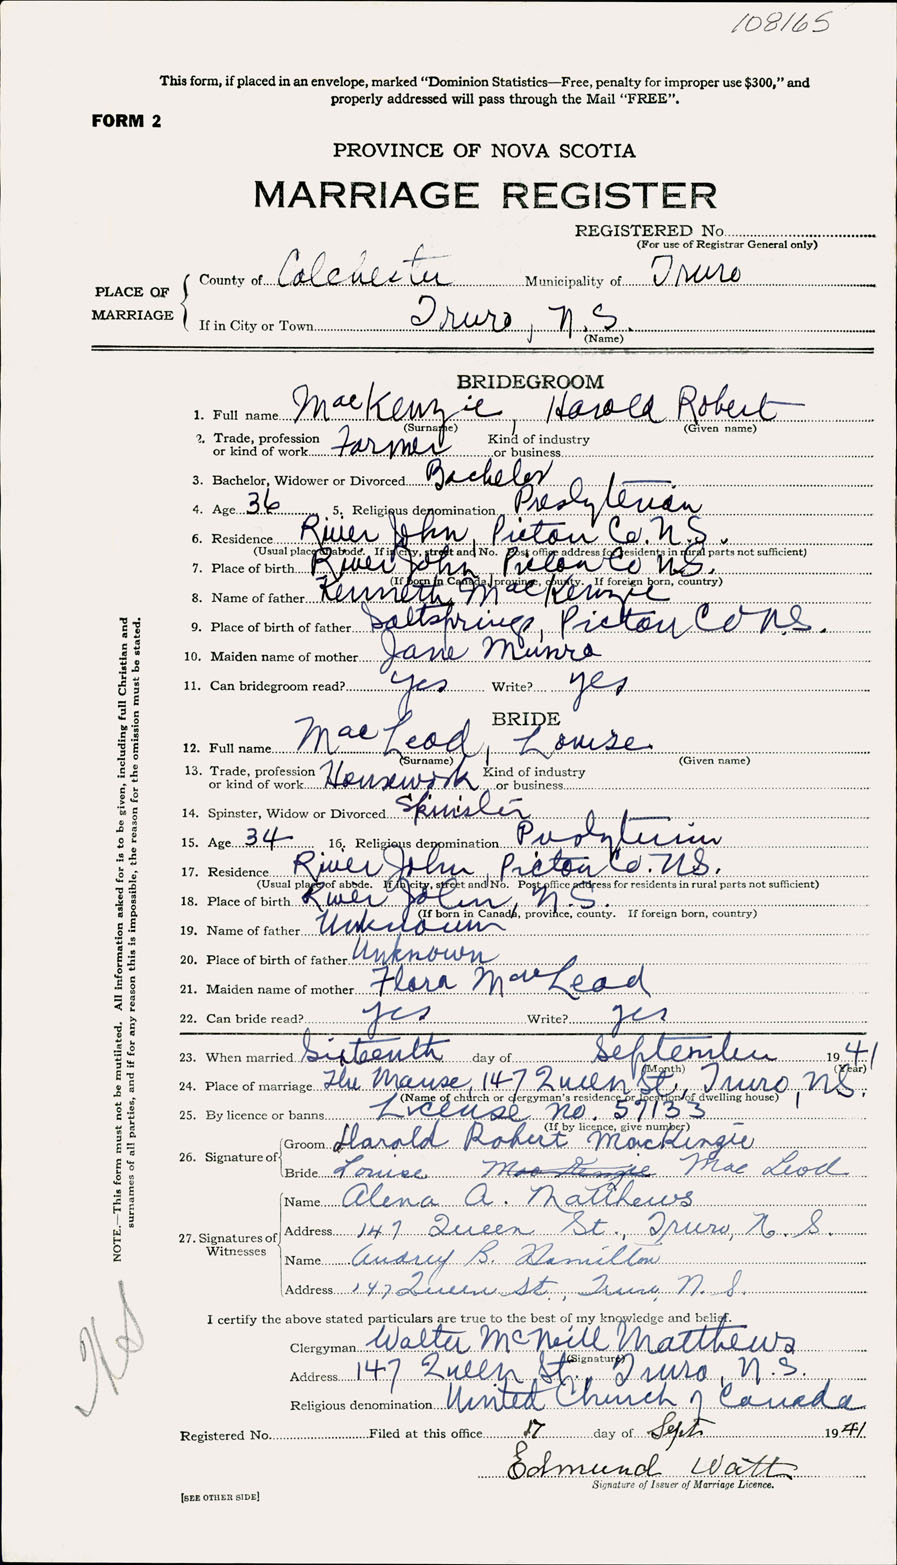 108165
This form, if placed in an envelope, marked “Dominion Statistics—Free, penalty for improper use $300,” and
properly addressed will pass through the Mail “FREE”.
FORM 2
PROVINCE OF NOVA SCOTIA
MARRIAGE REGISTER
REGISTERED No.
(For use of Registrar General only)
PLACE OF MARRIAGE
County of Colchester Municipality of Truro
If in City or Town Truro, N.S.
(Name)
BRIDEGROOM
1. Full name MacKenzie, Harold Robert
(Surname) (Given name)
2. Trade, profession or kind of work Farmer Kind of industry or business
3. Bachelor, Widower or Divorced Bachelor
4. Age 36 5. Religious denomination Presbyterian
6. Residence River John, Pictou Co. N.S.
(Usual place of abode. If in city, street and No. Post office address for residents in rural parts not sufficient)
7. Place of birth River John, Pictou Co N.S.
(If born in Canada, province, county. If foreign born, country)
8. Name of father Kenneth MacKenzie
9. Place of birth of father Saltsprings, Pictou Co N.S.
10. Maiden name of mother Jane Munro
11. Can bridegroom read? yes Write? yes
BRIDE
12. Full name MacLeod, Louise
(Surname) (Given name)
13. Trade, profession or kind of work Housework Kind of industry or business
14. Spinster, Widow or Divorced Spinster
15. Age 34 16. Religious denomination Presbyterian
17. Residence River John, Pictou Co. N.S.
(Usual place of abode. If in city, street and No. Post office address for residents in rural parts not sufficient)
18. Place of birth River John, N.S.
(If born in Canada, province, county. If foreign born, country)
19. Name of father Unknown
20. Place of birth of father Unknown
21. Maiden name of mother Flora MacLeod
22. Can bride read? yes Write? yes
23. When married Sixteenth day of September 1941
(Month) (Year)
24. Place of marriage The Manse, 147 Queen St., Truro, N.S.
(Name of church or clergyman's residence or location of dwelling house)
25. By licence or banns License no. 57133
(If by licence, give number)
26. Signature of
Groom Harold Robert MacKenzie
Bride Louise MacKenzie MacLeod
27. Signatures of Witnesses
Name Alena A. Matthews
Address 147 Queen St., Truro, N.S.
Name Audrey B. Hamilton
Address 147 Queen St., Truro, N.S.
I certify the above stated particulars are true to the best of my knowledge and belief.
Clergyman Walter McNeill Matthews
(Signature)
Address 147 Queen St., Truro, N.S.
Religious denomination United Church of Canada
Registered No. Filed at this office 17 day of Sept 1941
Edmund Watt
Signature of Issuer of Marriage Licence.
[SEE OTHER SIDE]
NOTE.—This form must not be mutilated. All information asked for is to be given, including full Christian and
surnames of all parties, and if for any reason this is impossible, the reason for the omission must be stated.